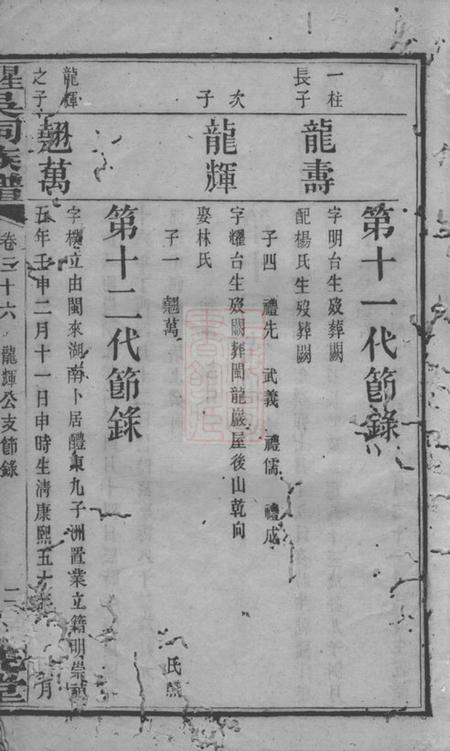 第十一代節錄
一柱
長子
龍壽
字明台生歿葬闕
配楊氏生歿葬闕
子四 禮先 武義 禮儒 禮成
次
子
龍輝
字耀台生歿闕葬閩龍巖屋後山乾向
娶林氏
子一 翹萬
第十二代節錄
龍輝
之子
翹萬
字 立由閩來湖南卜居醴東九子洲置業立籍明崇禎
五年壬申二月十一日申時生清康熙五十
有
氏
吳祠族譜
卷二十六 龍輝公支節錄
二
堂